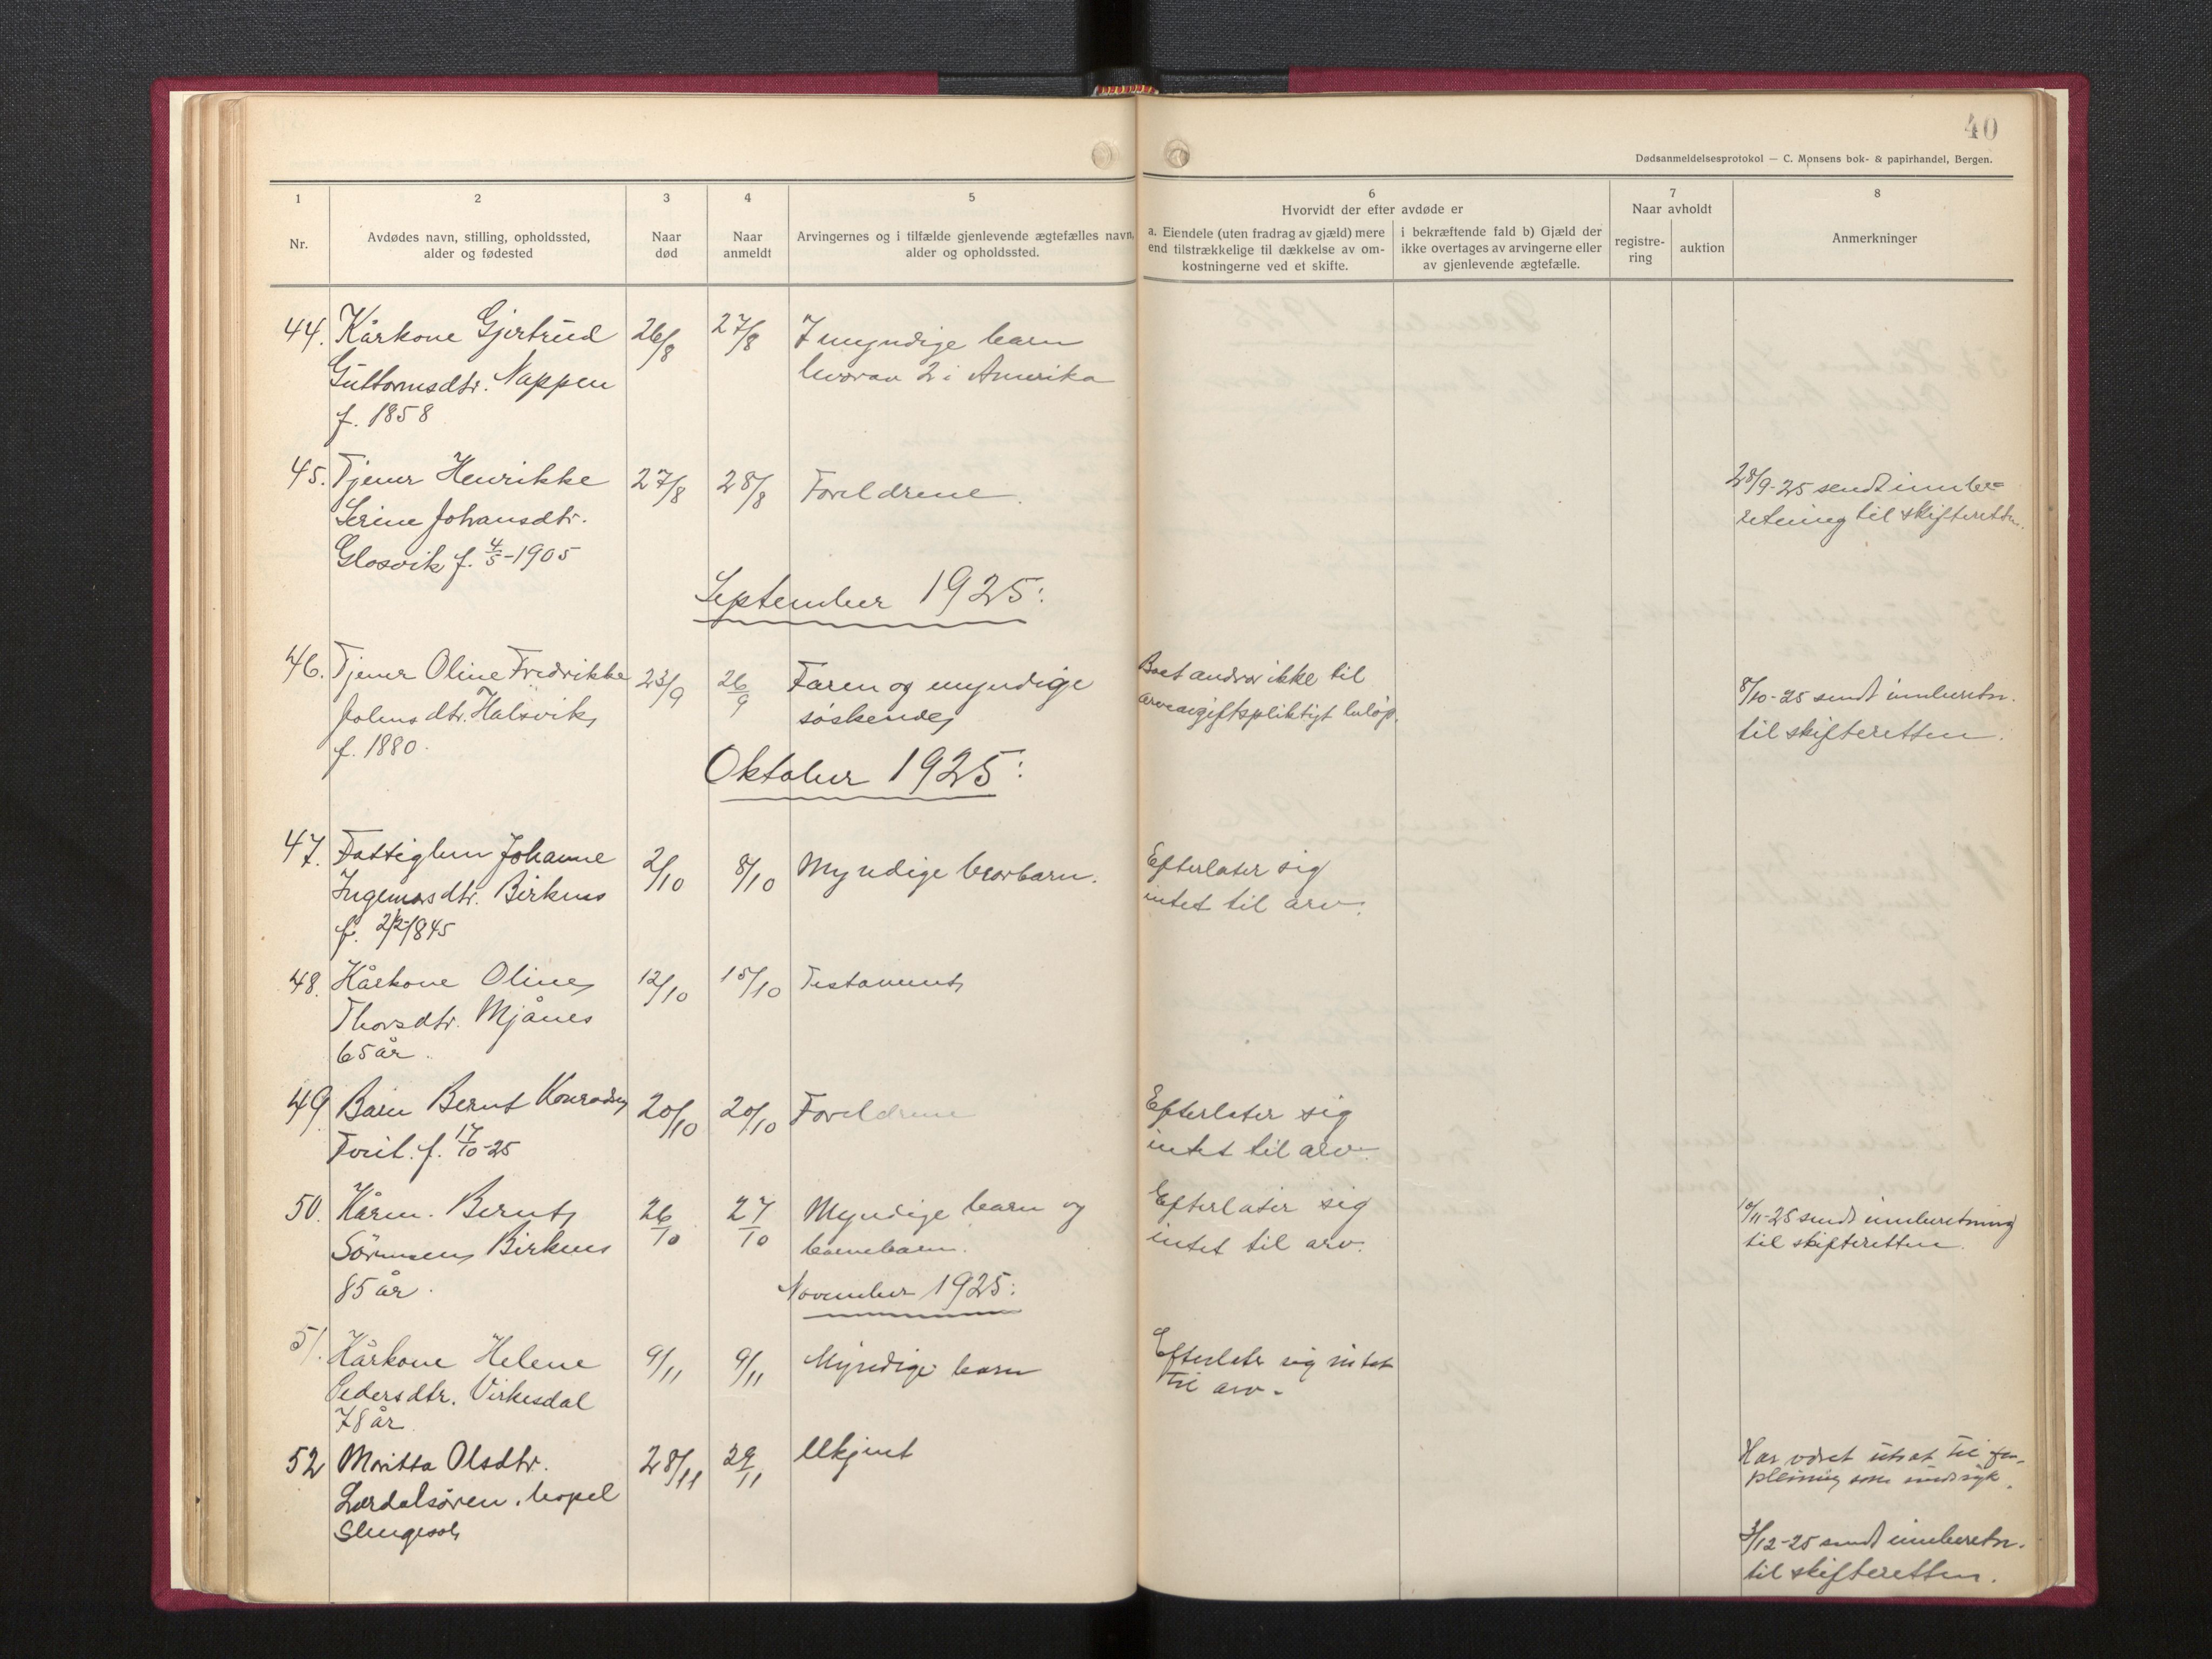 40
Dødsanmeldelsesprotokol — C. Monsens bok- & papirhandel, Bergen.
1 2 3 4 5 6 7 8
Nr.
Avdødes navn, stilling, opholdssted,
alder og fødested
Naar
død
Naar
anmeldt
Arvingernes og i tilfælde gjenlevende ægtefælles navn,
alder og opholdssted.
Hvorvidt der efter avdøde er
a. Eiendele (uten fradrag av gjæld) mere
end tilstrækkelige til dækkelse av om-
kostningerne ved et skifte.
i bekræftende fald b) Gjæld der
ikke overtages av arvingerne eller
av gjenlevende ægtefælle.
Naar avholdt
registre-
ring
auktion
Anmerkninger
44. Kårkone Gjertrud 26/8 27/8 7 myndige barn
Guttormsdtr. Nappen hvorav 2 i Amerika
f. 1858
45. Tjener Henrikke 27/8 28/8 Foreldrene. 28/9-25 sendt innbe=
Serine Johansdtr. retning til skifteretten.
Glosvik f. 4/5-1905
September 1925:
46. Tjener Oline Fredrikke 23/9 26/9 Faren og myndige Boet andrar ikke til 8/10-25 sendt innberetn.
Johnsdtr. Halsvik, søskende, arveavgiftspliktigt beløp. til skifteretten.
f. 1880.
Oktober 1925:
47. Fattiglem Johanne 2/10 8/10 Myndige brorbarn. Efterlater sig
Ingemarsdtr. Birknes intet til arv.
f. 2/2-1845
48. Kårkone Oline, 12/10 15/10 Testament,
Thorsdtr. Mjånes
65 år.
49 Barn Bernt Konradsen 20/10 20/10 Foreldrene Efterlater sig
f. 17/10-25 intet til arv.
50. Kårm. Bernt, 26/10 27/10 Myndige barn og Efterlater sig 10/11-25 sendt innberetning
Sörensen, Birknes barnebarn. intet til arv. til skifteretten.
85 år.
November 1925:
51. Kårkone Helene 9/11 9/11 Myndige barn Efterlater sig intet
Pedersdtr. Virkesdal til arv.
78 år
52 Moritta Olsdtr. 28/11 29/11 Ukjent Har været utsat til for-
Lærdalsøren. pleining som sindssyk.
3/12-25 sendt innberetn.
til skifteretten.